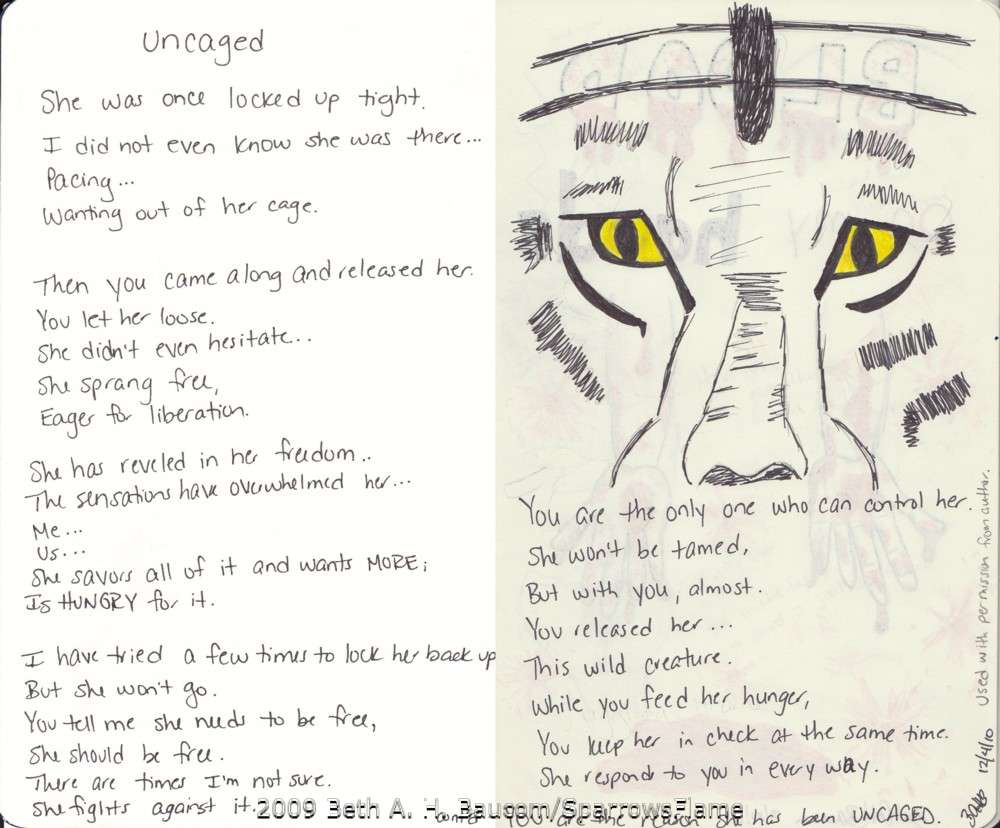 Uncaged
She was once locked up tight.
I did not even know she was there...
Pacing...
Wanting out of her cage.
Then you came along and released her.
You let her loose.
She didn't even hesitate...
She sprang free,
Eager for liberation.
She has reveled in her freedom..
The sensations have overwhelmed her...
Me...
Us...
She savors all of it and wants MORE;
Is HUNGRY for it.
I have tried a few times to lock her back up
But she won't go.
You tell me she needs to be free,
She should be free.
There are times I'm not sure.
She fights against it.
BLOOD
You are the only one who can control her.
She won't be tamed,
But with you, almost.
You released her...
This wild creature.
While you feed her hunger,
You keep her in check at the same time.
She responds to you in every way.
You are the reason she has been UNCAGED.
Used with permission from author.
12/4/10
2009 Beth A. H. Bausom/SparrowsFlame